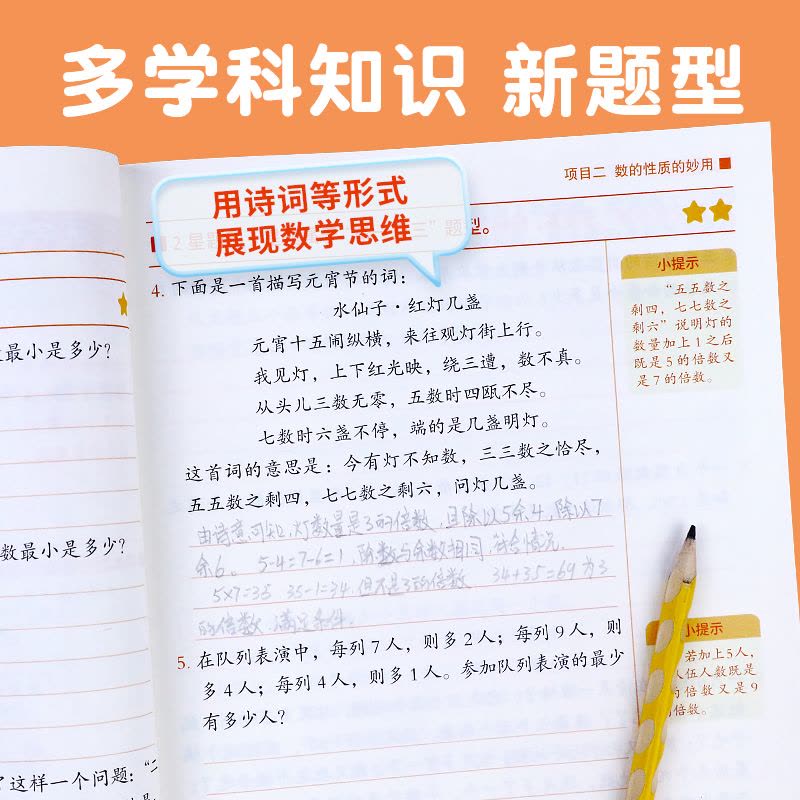 多学科知识 新题型
用诗词等形式
展现数学思维
项目二 数的性质的妙用
2星题
三”题型。
4. 下面是一首描写元宵节的词：
水仙子·红灯几盏
元宵十五闹纵横，来往观灯街上行。
我见灯，上下红光映，绕三遭，数不真。
从头儿三数无零，五数时四瓯不尽。
七数时六盏不停，端的是几盏明灯。
这首词的意思是：今有灯不知数，三三数之恰尽，
五五数之剩四，七七数之剩六，问灯几盏。
由诗意可知，灯数量是3的倍数，且除以5余4，除以7
余6。 5-4=7-6=1，除数与余数相同，符合情况.
5×7=35 35-1=34，但不是3的倍数 34+35=69 为3
的倍数，满足条件。
5. 在队列表演中，每列7人，则多2人；每列9人，则
多4人；每列4人，则多1人。参加队列表演的最少
有多少人？
小提示
“五五数之
剩四，七七数之
剩六”说明灯的
数量加上1之后
既是5的倍数又
是7的倍数。
小提示
若加上5人，
人伍人数既是
的倍数又是9
倍数。
最小是多少？
数最小是多少？
了这样一个问题：“二